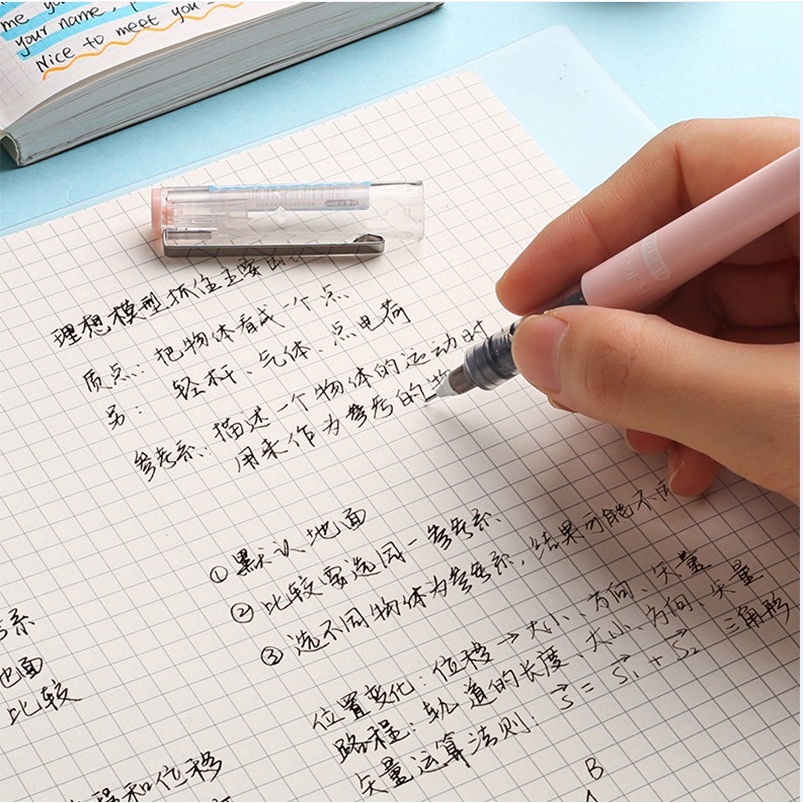 me you
your name, p
Nice to meet you
理想模型抓住主要因
质点: 把物体看成一个点
另: 轻杆、气体、点电荷
参考系: 描述一个物体的运动时
用来作为参考的物
①默认地面
②比较要选同一参考系
③选不同物体为参考系,结果可能不同
位置变化: 位移→大小、方向、矢量
路程: 轨道的长度、大小、方向、矢量
矢量运算法则: S⃗ = S⃗₁ + S⃗₂ 三角形
B
系
地面
比较
和位移